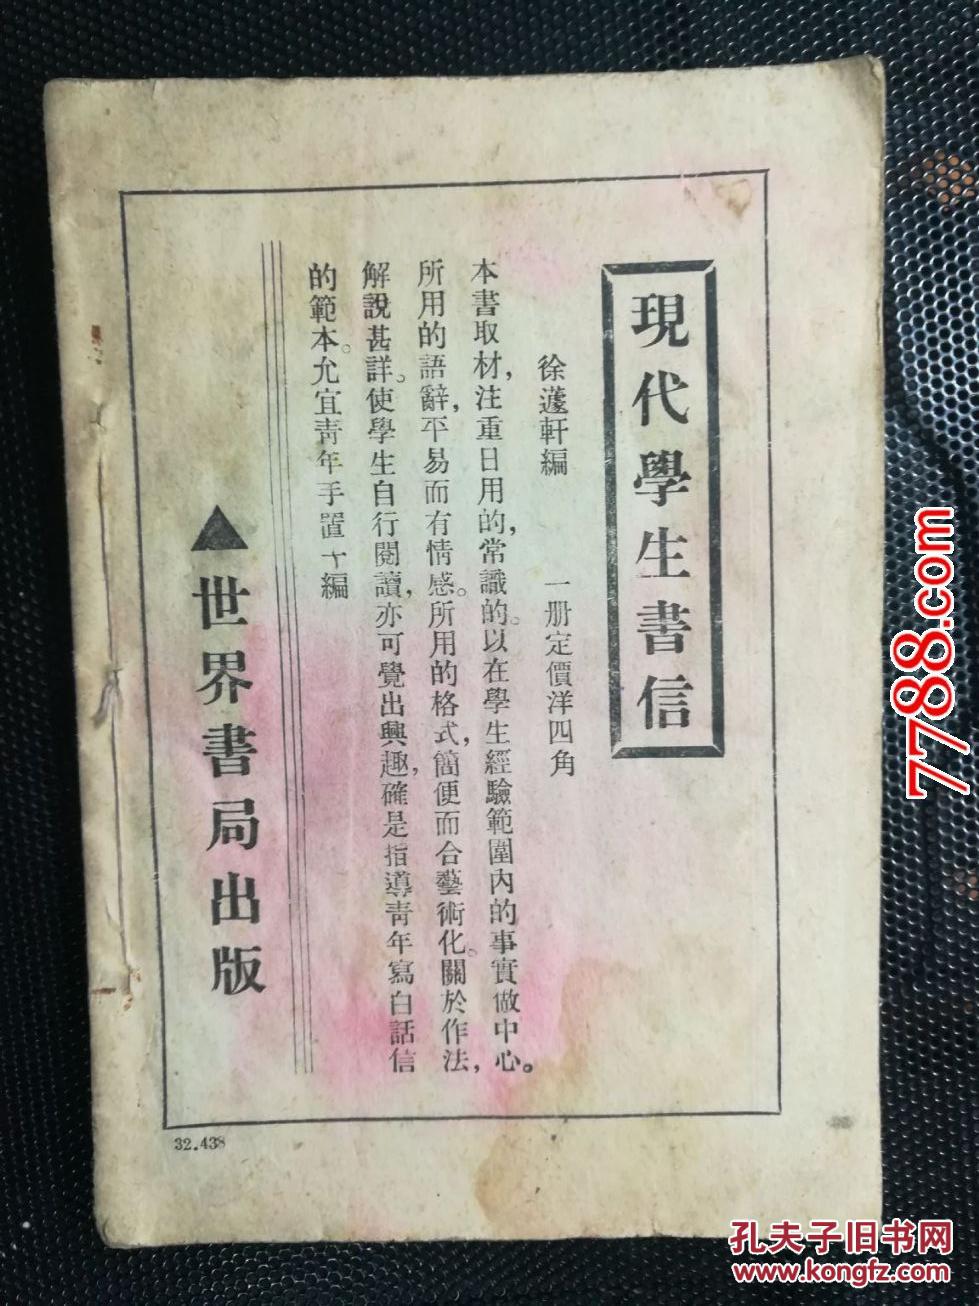 現代學生書信
徐蘧軒編 一册定價洋四角
本書取材，注重日用的，常識的。以在學生經驗範圍內的事實做中心。
所用的語辭，平易而有情感。所用的格式，簡便而合藝術化。關於作法，
解說甚詳。使學生自行閱讀，亦可覺出興趣，確是指導青年寫白話信
的範本。允宜青年手置十編
▲世界書局出版
32.438
7788.com
孔夫子旧书网
www.kongfz.com